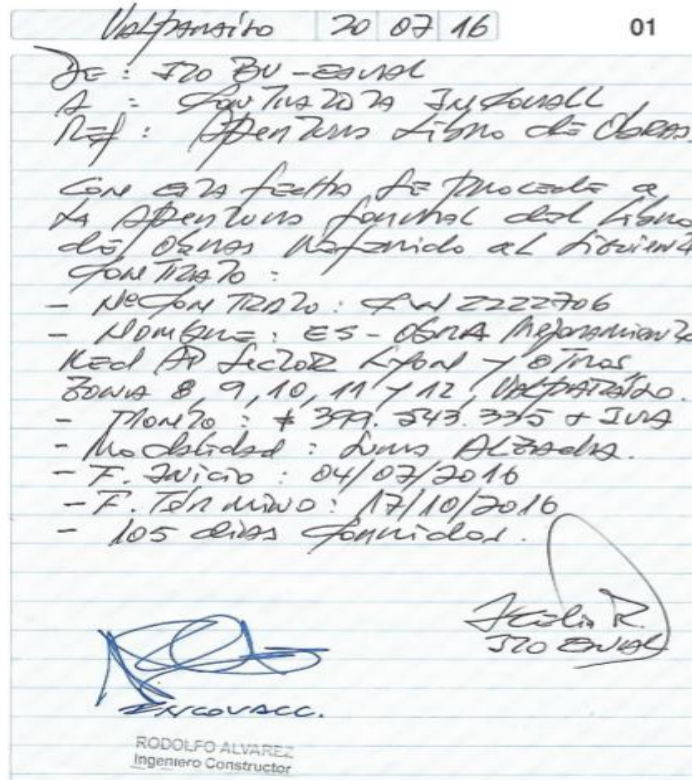 Valparaíso 20 07 16 01
DE : ITO BV - ESVAL
A : Contratista INCOVALL
Ref : Apertura Libro de Obras.
Con esta fecha se procede a
la Apertura formal del Libro
de obras referido al siguiente
contrato :
- N° Contrato : CW2222706
- Nombre : ES - OBRA Mejoramiento
Red AP Sector Lyon y otros
zona 8, 9, 10, 11 y 12, Valparaíso.
- Monto : $ 399.543.335 + IVA
- Modalidad : Suma ALZADA.
- F. Inicio : 04/07/2016
- F. Término : 17/10/2016
- 105 días corridos.
R.
ITO ESVAL
INCOVALL.
RODOLFO ALVAREZ
Ingeniero Constructor